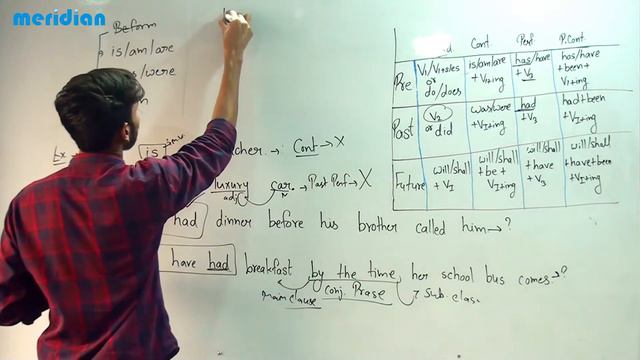 meridian
Be form
is/am/are
/were
Ex
is
cher. → Cont → X
luxury car. → Past Perf → X
adj N
had dinner before his brother called him → ?
have had breakfast by the time her school bus comes → ?
main clause Conj. Prase Sub. clas.
id. Cont. Perf. P.Cont.
Pre V1/V1+s/es or do/does is/am/are + V1+ing has/have + V3 has/have + been + V1+ing
Past V2 or did was/were + V1+ing had + V3 had + been + V1+ing
Future will/shall + V1 will/shall + be + V1+ing will/shall + have + V3 will/shall + have + been + V1+ing